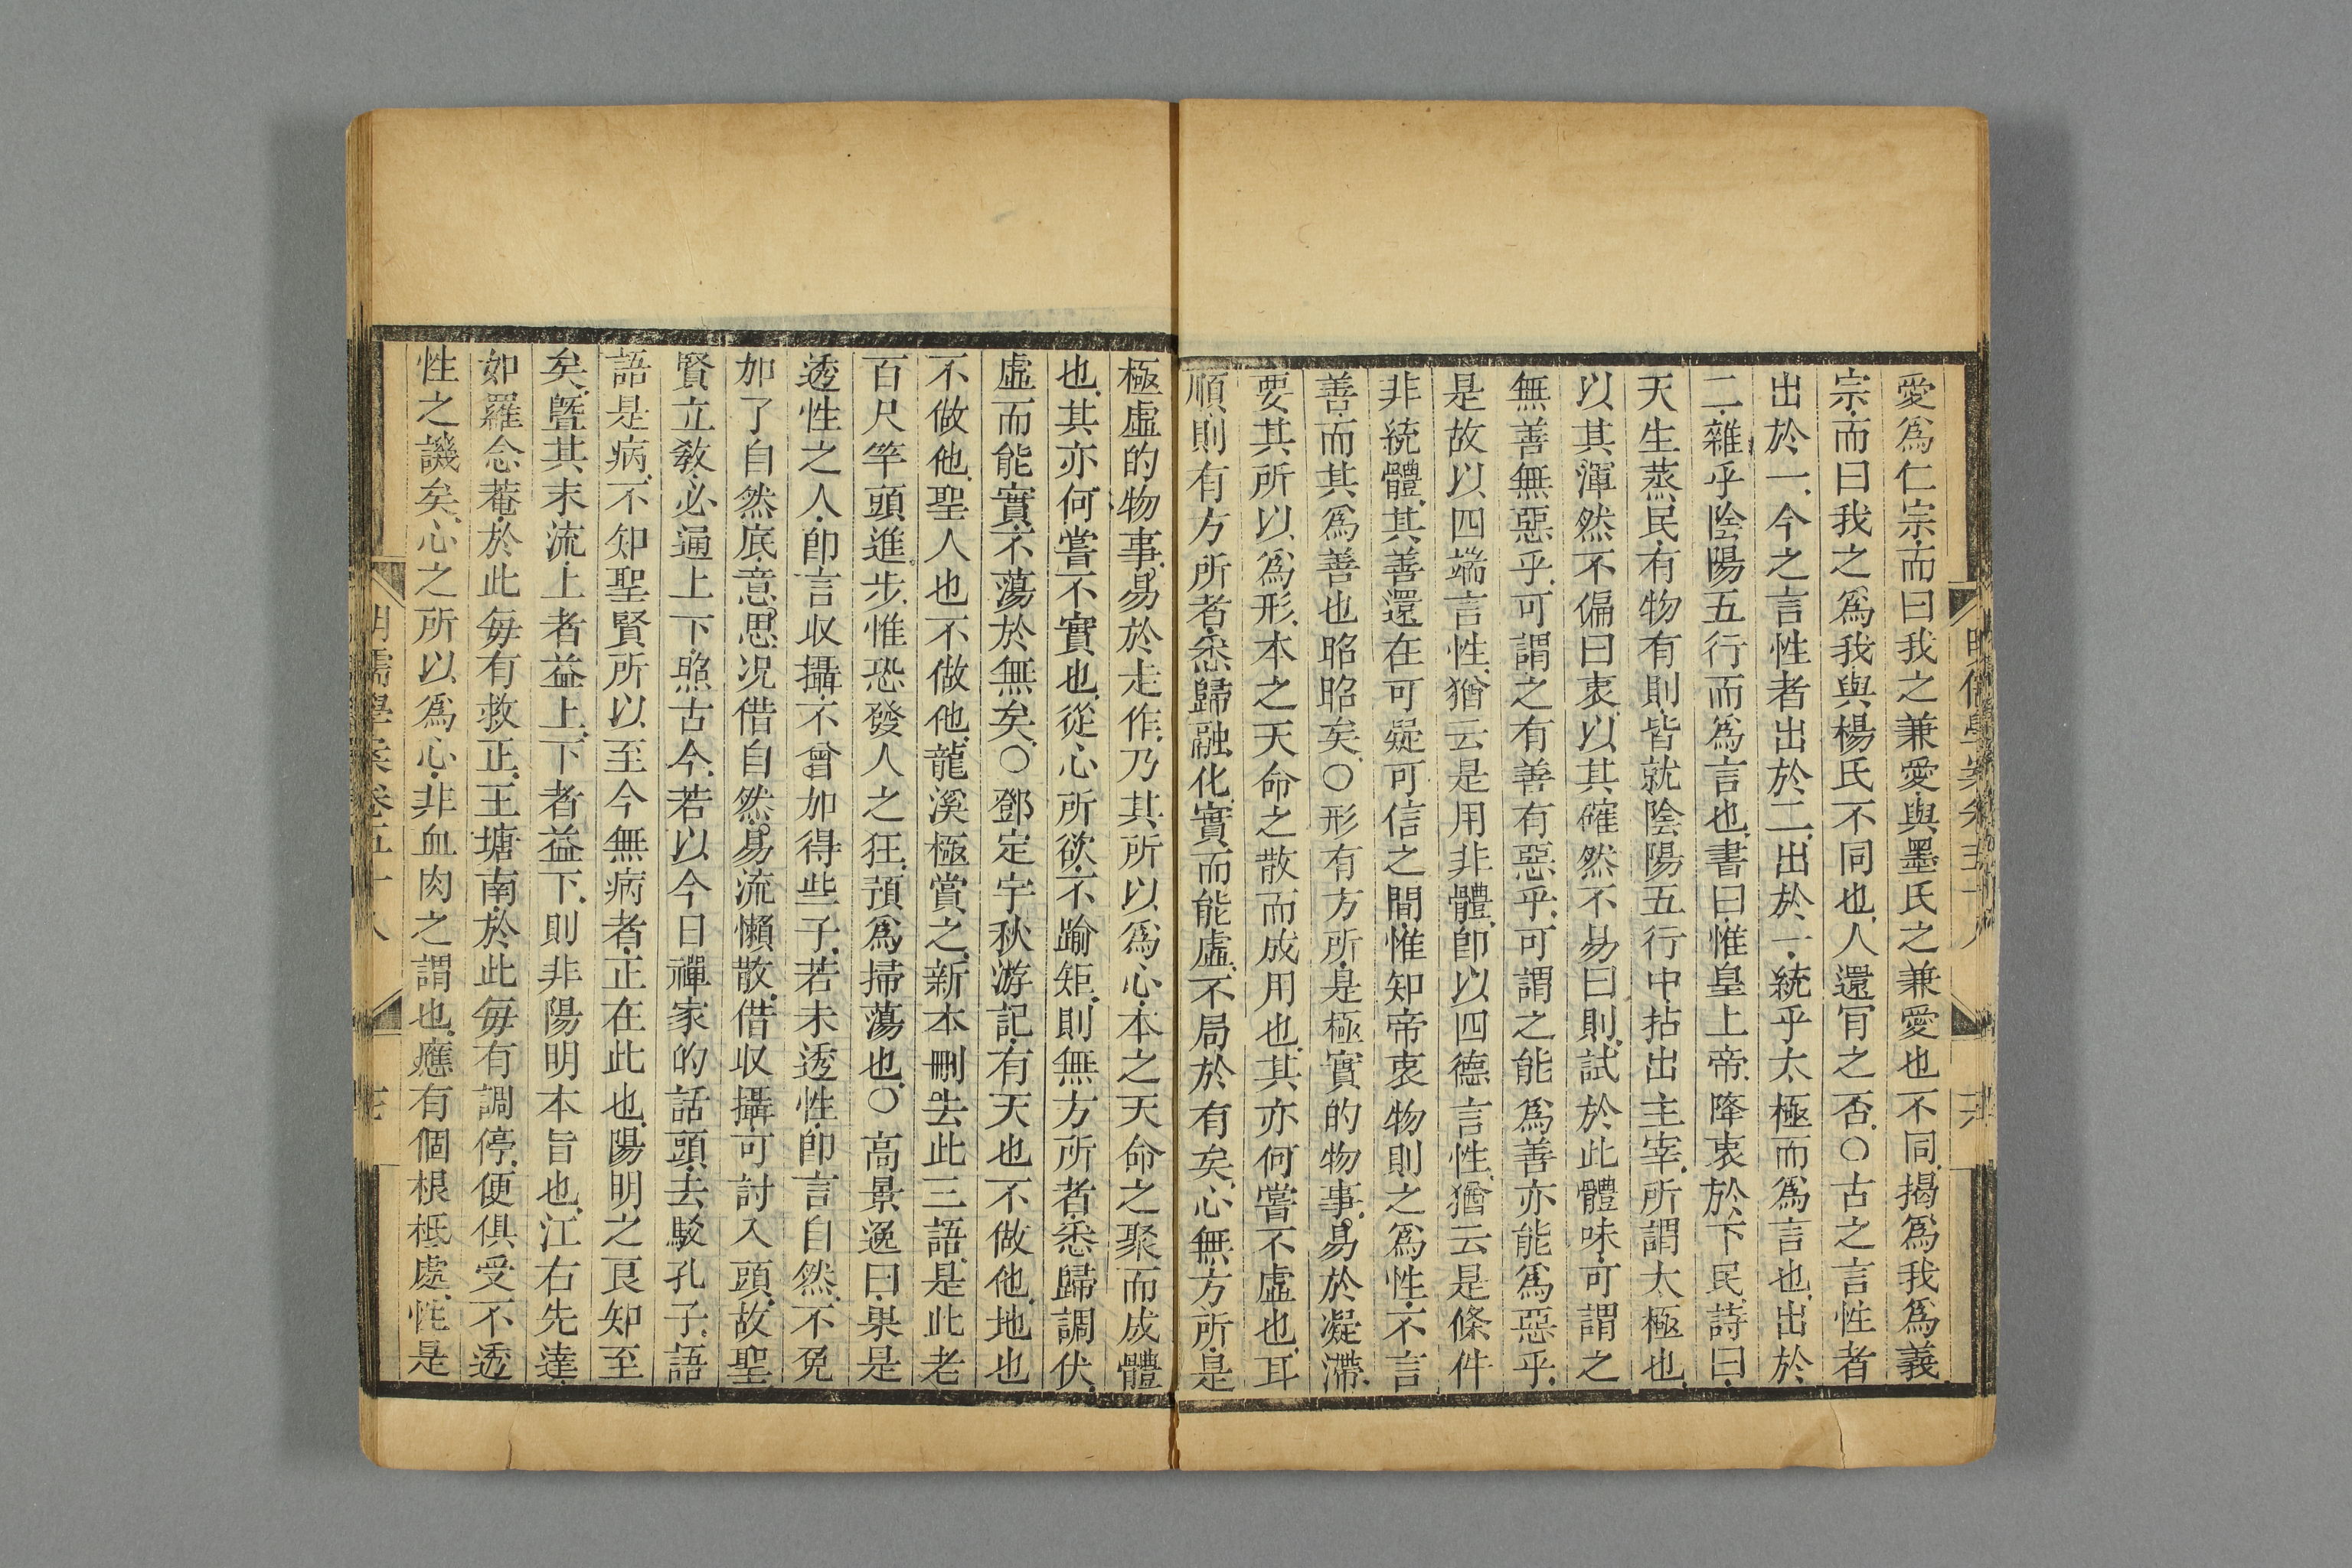 愛爲仁宗而曰我之兼愛與墨氏之兼愛也不同揭爲我爲義
宗而曰我之爲我與楊氏不同也人還肎之否○古之言性者
出於一今之言性者出於二出於一統乎太極而爲言也出於
二雜乎陰陽五行而爲言也書曰惟皇上帝降衷於下民詩曰
天生蒸民有物有則皆就陰陽五行中拈出主宰所謂太極也
以其渾然不偏曰衷以其確然不易曰則試於此體味可謂之
無善無惡乎可謂之有善有惡乎可謂之能爲善亦能爲惡乎
是故以四端言性猶云是用非體卽以四德言性猶云是條件
非統體其善還在可疑可信之間惟知帝衷物則之爲性不言
善而其爲善也昭昭矣○形有方所是極實的物事易於凝滯
要其所以爲形本之天命之散而成用也其亦何嘗不虛也耳
順則有方所者悉歸融化實而能虛不局於有矣心無方所是
極虛的物事易於走作乃其所以爲心本之天命之聚而成體
也其亦何嘗不實也從心所欲不踰矩則無方所者悉歸調伏
虛而能實不蕩於無矣○鄧定宇秋游記有天也不做他地也
不做他聖人也不做他龍溪極賞之新本刪去此三語是此老
百尺竿頭進步惟恐發人之狂預爲掃蕩也○高景逸曰果是
透性之人卽言收攝不曾加得些子若未透性卽言自然不免
加了自然底意思况借自然易流懶散借收攝可討入頭故聖
賢立敎必通上下照古今若以今日禪家的話頭去駁孔子語
語是病不知聖賢所以至今無病者正在此也陽明之良知至
矣曁其末流上者益上下者益下則非陽明本旨也江右先達
如羅念菴於此每有救正王塘南於此每有調停便俱受不透
性之譏矣心之所以爲心非血肉之謂也應有個根柢處性是
明儒學案卷五十八